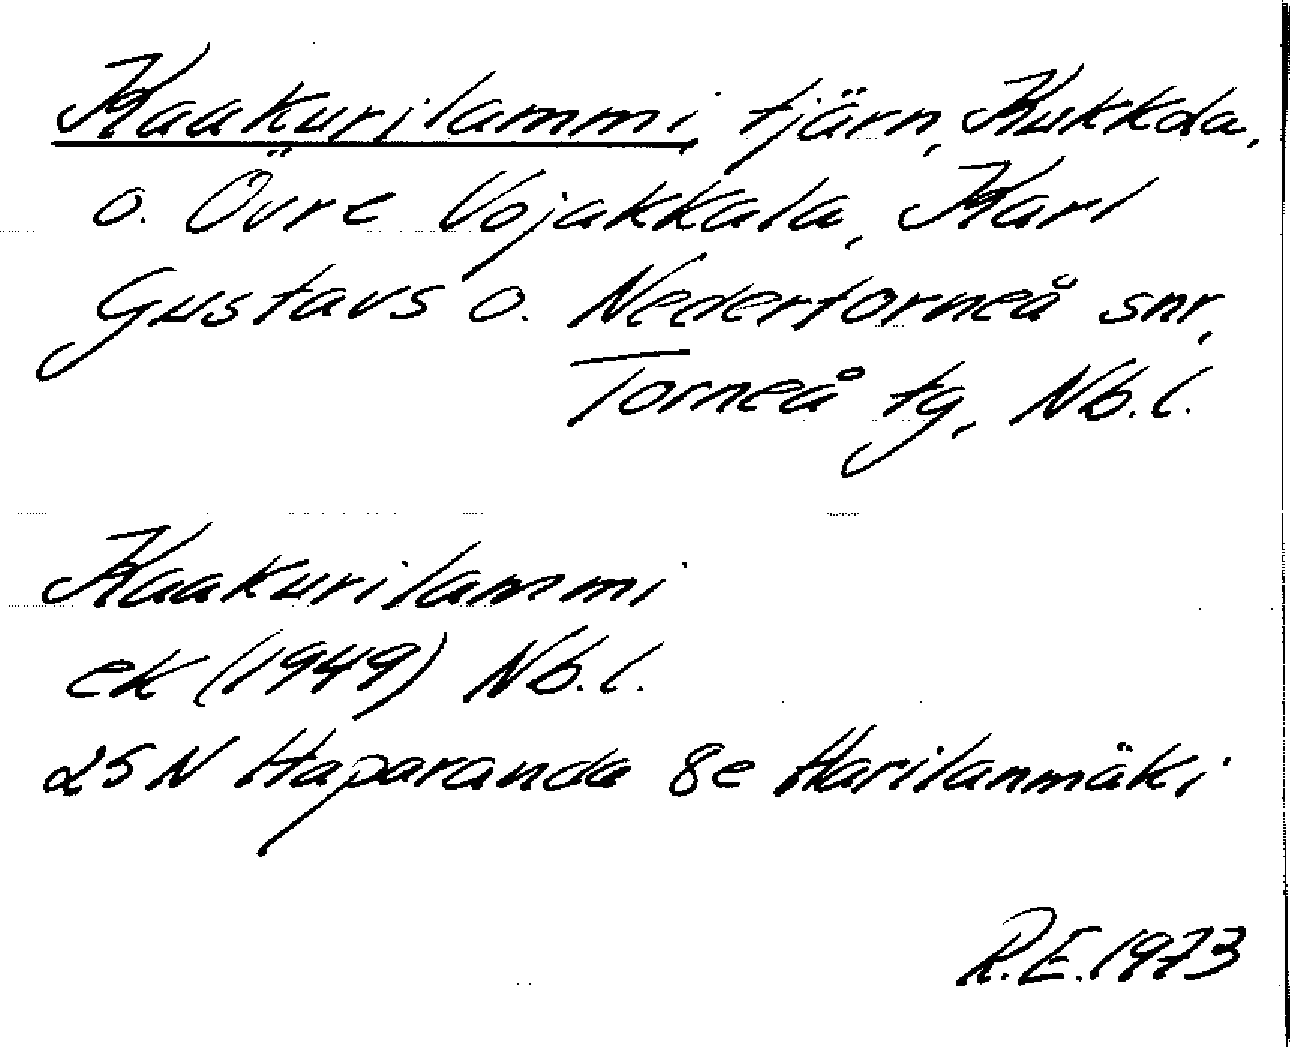 Kaakurilammi, tjärn, Kukkola,
o. Övre Vojakkala, Karl
Gustavs o. Nedertorneå snr,
Torneå tg, Nb.l.
Kaakurilammi
ek (1949) Nb.l.
25 N Haparanda 8e Harilanmäki
R.E. 1973